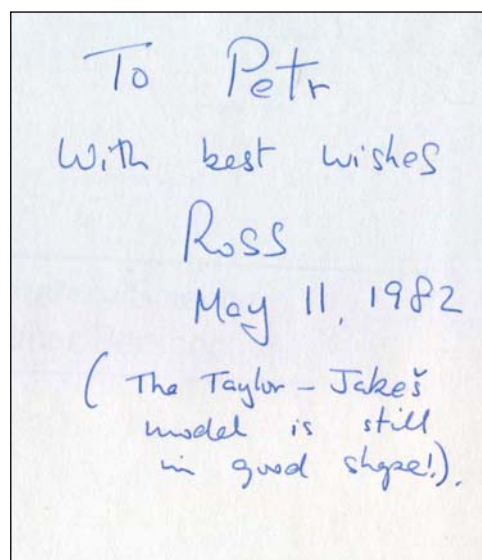 To Petr
With best wishes
Ross
May 11, 1982
(The Taylor – Jakeš
model is still
in good shape!).